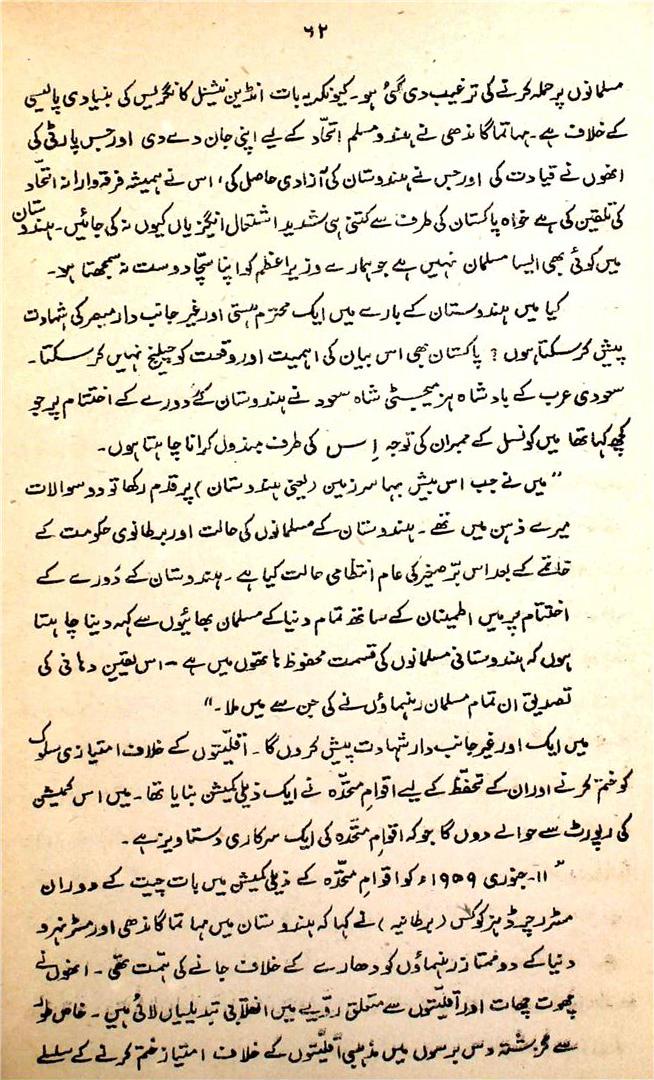 ۶۲
مسلمانوں پر حملہ کرنے کی ترغیب دی گئی ہو۔ کیونکہ یہ بات انڈین نیشنل کانگریس کی بنیادی پالیسی
کے خلاف ہے۔ مہاتما گاندھی نے ہندو مسلم اتحّاد کے لیے اپنی جان دے دی اور جس پارٹی کی
انھوں نے قیادت کی اور جس نے ہندوستان کی آزادی حاصل کی، اس نے ہمیشہ فرقہ وارانہ اتحّاد
کی تلقین کی ہے خواہ پاکستان کی طرف سے کتنی ہی شدید اشتعال انگیزیاں کیوں نہ کی جائیں۔ ہندوستان
میں کوئی بھی ایسا مسلمان نہیں ہے جو ہمارے وزیر اعظم کو اپنا سچّا دوست نہ سمجھتا ہو۔
کیا میں ہندوستان کے بارے میں ایک محترم ہستی اور غیر جانب دار مبصر کی شہادت
پیش کر سکتا ہوں؟ پاکستان بھی اس بیان کی اہمیت اور وقعت کو چیلنج نہیں کر سکتا۔
سعودی عرب کے بادشاہ ہز میجسٹی شاہ سعود نے ہندوستان کے دورے کے اختتام پر جو
کچھ کہا تھا میں کونسل کے ممبران کی توجہ اِس کی طرف مبذول کرانا چاہتا ہوں۔
”میں نے جب اس بیش بہا سرزمین (یعنی ہندوستان) پر قدم رکھا تو دو سوالات
میرے ذہن میں تھے۔ ہندوستان کے مسلمانوں کی حالت اور برطانوی حکومت کے
خاتمے کے بعد اس برّصغیر کی عام انتظامی حالت کیا ہے۔ ہندوستان کے دَورے کے
اختتام پر میں اطمینان کے ساتھ تمام دنیا کے مسلمان بھائیوں سے کہہ دینا چاہتا
ہوں کہ ہندوستانی مسلمانوں کی قسمت محفوظ ہاتھوں میں ہے۔ اس یقین دہانی کی
تصدیق ان تمام مسلمان رہنماؤں نے کی جن سے میں ملا۔“
میں ایک اور غیر جانب دار شہادت پیش کروں گا۔ اقلیّتوں کے خلاف امتیازی سلوک
کو ختم کرنے اور ان کے تحفّظ کے لیے اقوامِ متحدّہ نے ایک ذیلی کمیشن بنایا تھا۔ میں اس کمیشن
کی رپورٹ سے حوالے دوں گا جو کہ اقوامِ متحّدہ کی ایک سرکاری دستاویز ہے۔
”۱۱۔ جنوری ۱۹۵۹ء کو اقوامِ متحّدہ کے ذیلی کمیشن میں بات چیت کے دوران
مسٹر رچرڈ ہزکوکس (برطانیہ) نے کہا کہ ہندوستان میں مہاتما گاندھی اور مسٹر نہرو
دنیا کے دو ممتاز رہنماؤں کو دھارے کے خلاف جانے کی ہمّت تھی۔ انھوں نے
چھوت چھات اور اقلیّتوں سے متعلق رویّے میں انقلابی تبدیلیاں لائی ہیں۔ خاص طور
سے گزشتہ دس برسوں میں مذہبی اقلیّتوں کے خلاف امتیاز ختم کرنے کے سلسلے